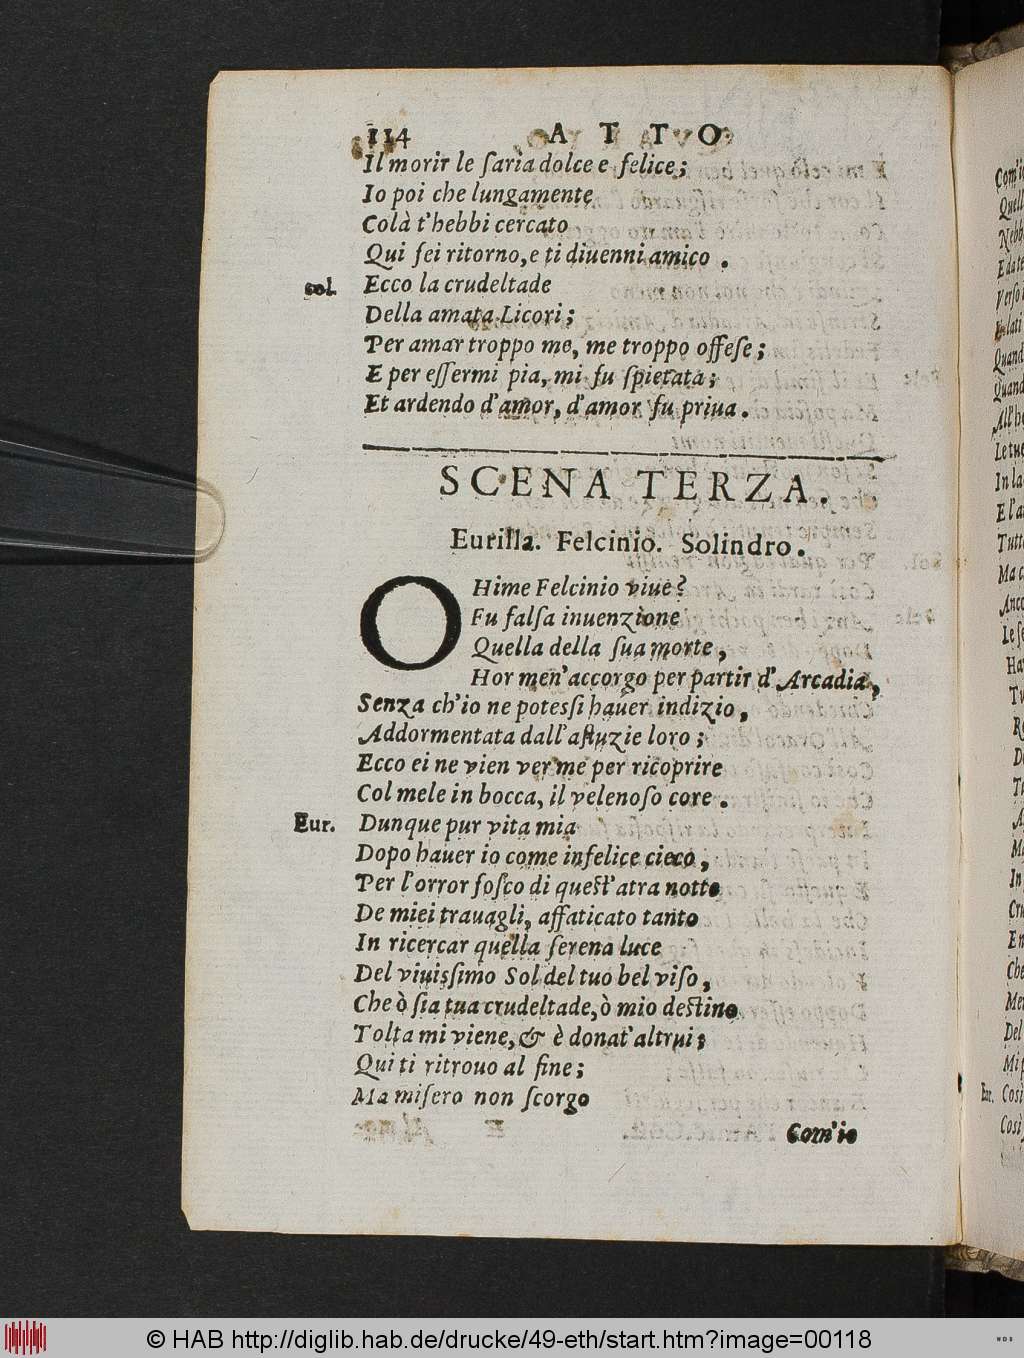 114 ATTO
Il morir le ſaria dolce e felice;
Io poi che lungamente
Colà t'hebbi cercato
Qui fei ritorno, e ti diuenni amico.
sol. Ecco la crudeltade
Della amata Licori;
Per amar troppo me, me troppo offeſe;
E per eſſermi pia, mi fu ſpietata;
Et ardendo d'amor, d'amor fu priua.
SCENA TERZA.
Eurilla. Felcinio. Solindro.
OHime Felcinio viue?
Fu falſa inuenzione
Quella della ſua morte,
Hor men'accorgo per partir d'Arcadia,
Senza ch'io ne poteſſi hauer indizio,
Addormentata dall'aſtuzie loro;
Ecco ei ne vien ver me per ricoprire
Col mele in bocca, il velenoſo core.
Eur. Dunque pur vita mia
Dopo hauer io come infelice cieco,
Per l'orror foſco di queſt'atra notte
De miei trauagli, affaticato tanto
In ricercar quella ſerena luce
Del viuiſſimo Sol del tuo bel viſo,
Che ò ſia tua crudeltade, ò mio deſtino
Tolta mi viene, & è donat'altrui;
Qui ti ritrouo al fine;
Ma miſero non ſcorgo
Com'io
Com'i
Quell
Nebb
E da te
Verſo i
Quand
Quand
All'ho
Le tue
In la
E l'a
Tutto
Ma c
Anco
Eur. Coſì
Coſì
© HAB http://diglib.hab.de/drucke/49-eth/start.htm?image=00118